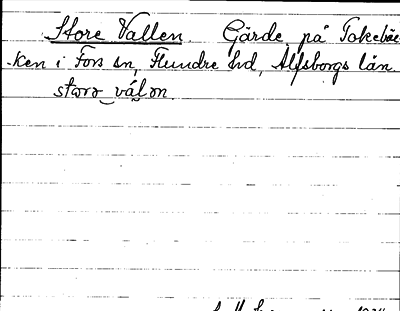 Store Vallen. Gärde på Tokebäc-
ken i Fors sn, Flundre hd, Älfsborgs län.
storə vál ən.